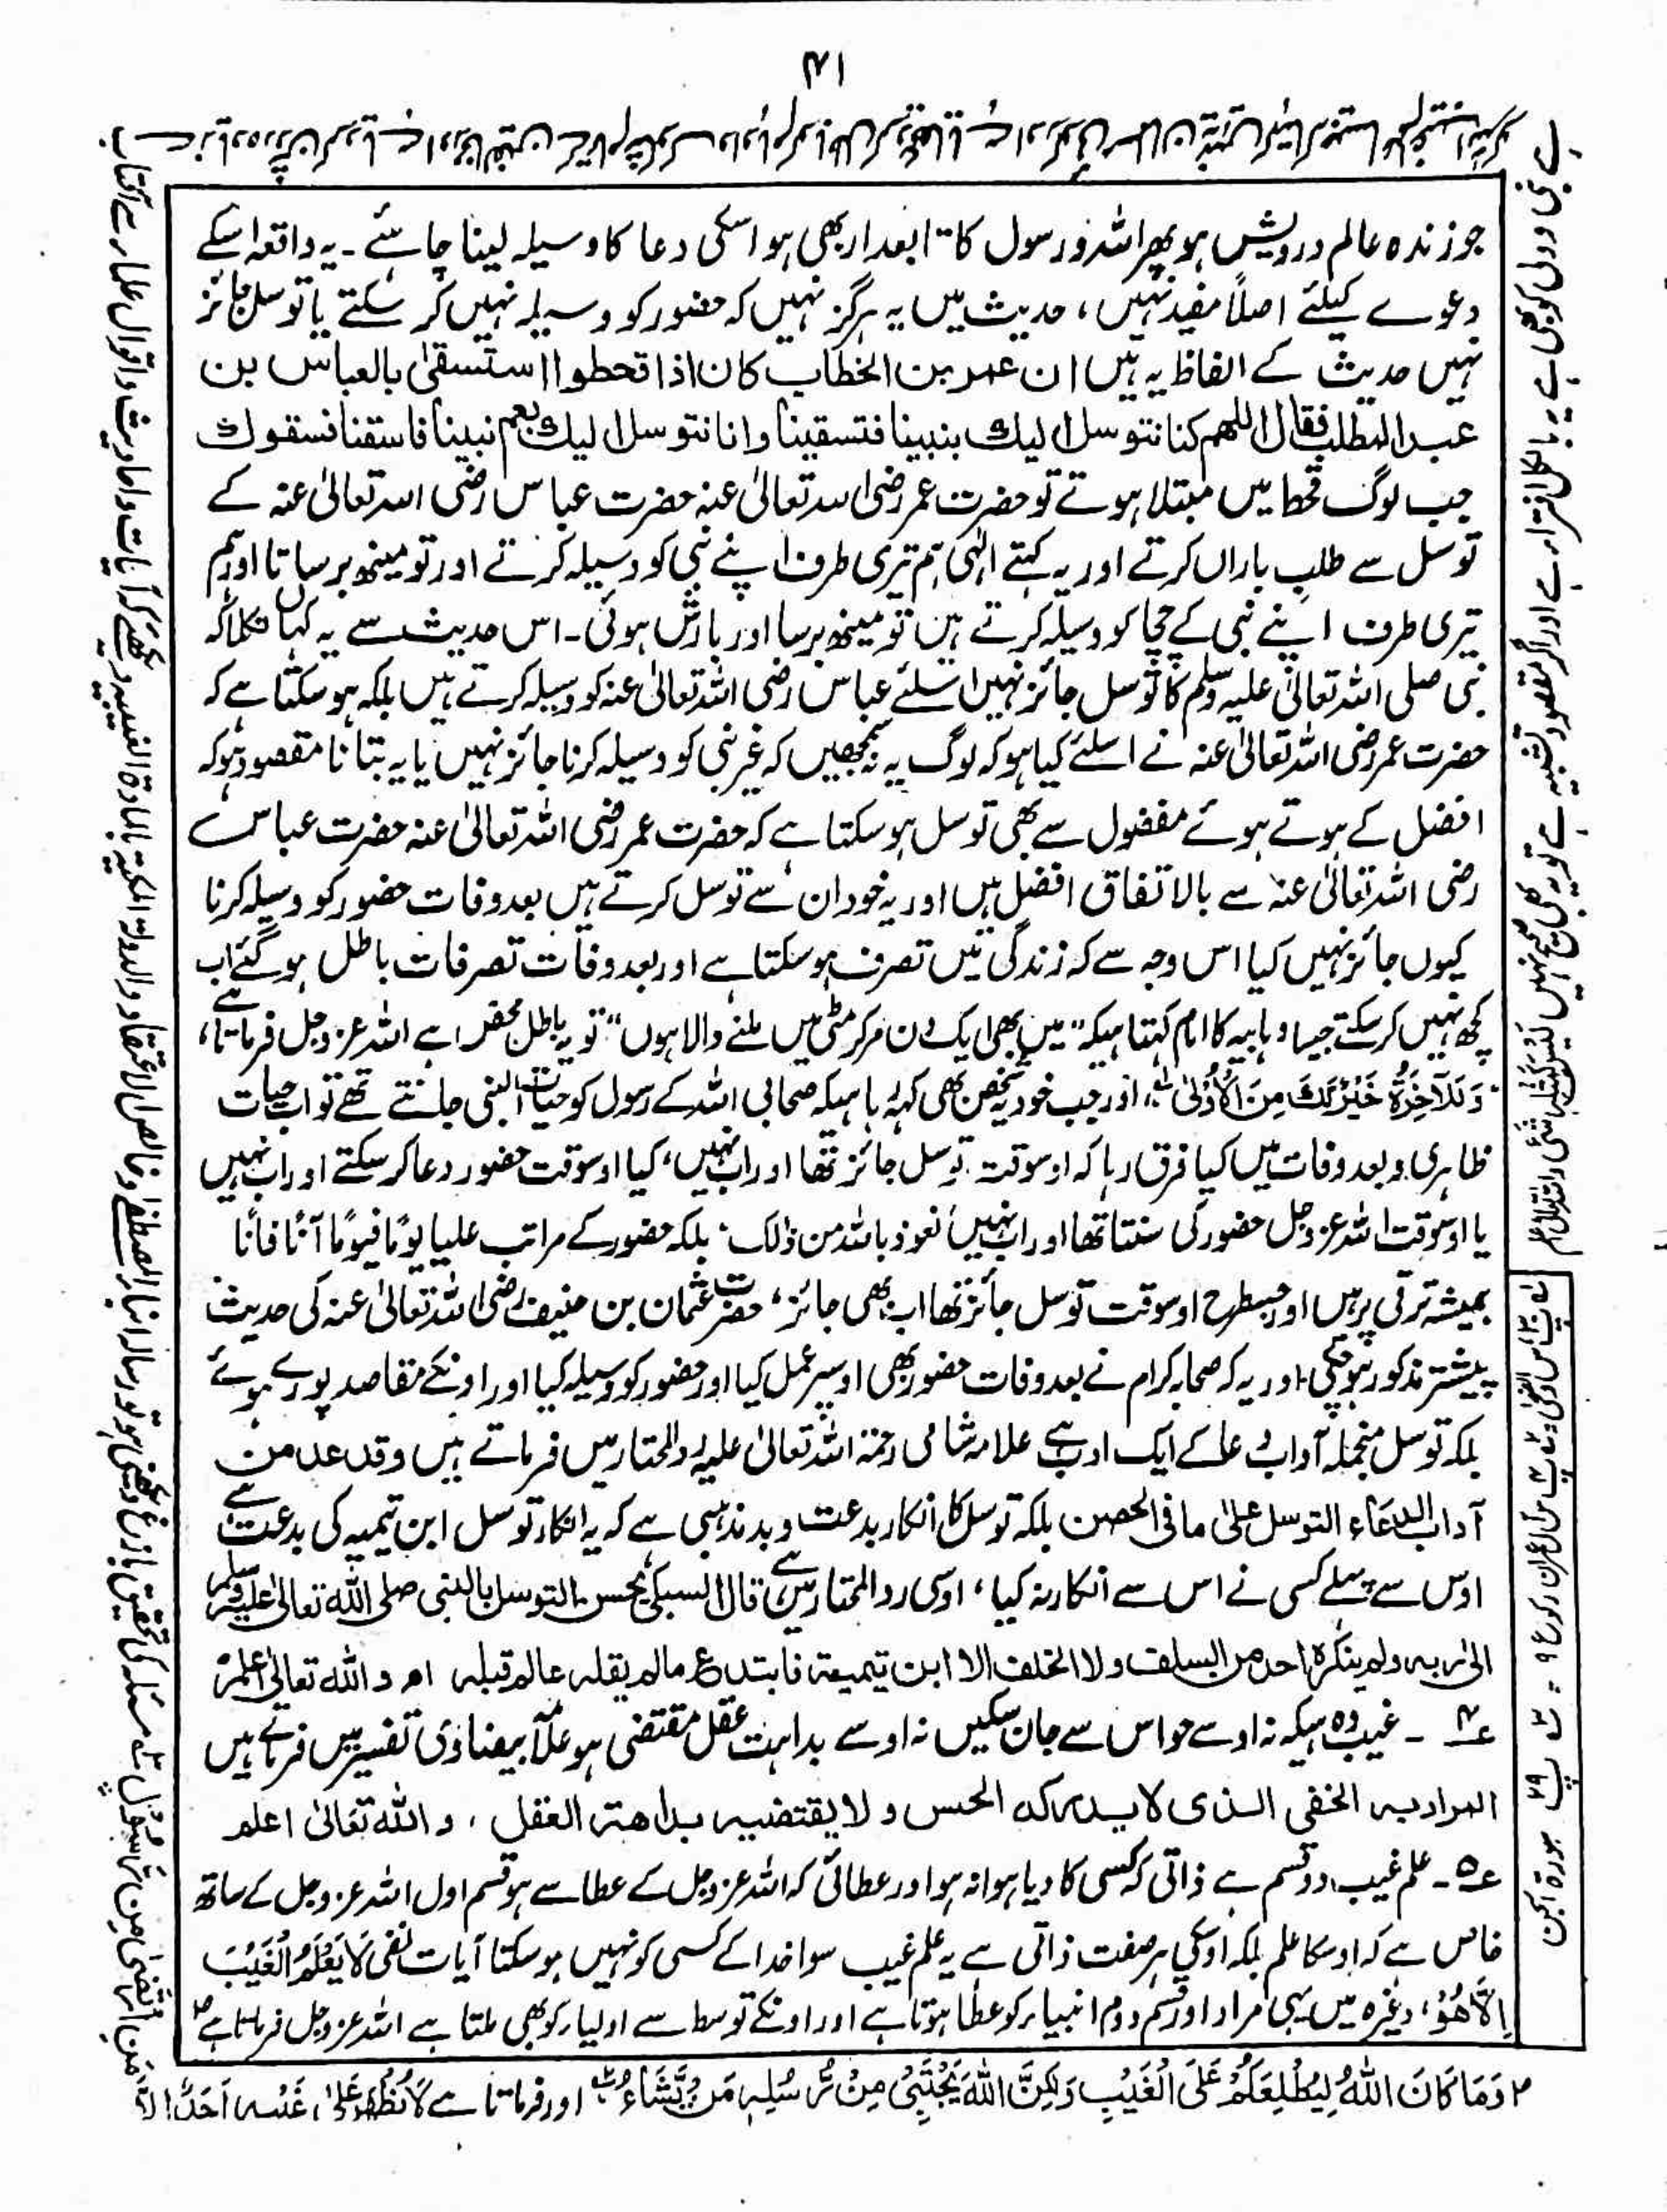 ۴۱
جو زندہ عالم درویش ہو پھر اللہ و رسول کا تابعدار بھی ہو اسکی دعا کا وسیلہ لینا چاہئے ۔ یہ واقعہ اسکے
دعوے کیلئے اصلاً مفید نہیں، حدیث میں یہ ہرگز نہیں کہ حضور کو وسیلہ نہیں کر سکتے یا توسل جائز
نہیں حدیث کے الفاظ یہ ہیں ان عمر بن الخطاب کان اذا قحطوا استسقیٰ بالعباس بن
عبد المطلب فقال اللھم کنا نتوسل الیک بنبینا فتسقینا وانا نتوسل الیک بعم نبینا فاسقنا فسقوا
جب لوگ قحط میں مبتلا ہوتے تو حضرت عمر رضی اللہ تعالیٰ عنہ حضرت عباس رضی اللہ تعالیٰ عنہ کے
توسل سے طلب باراں کرتے اور یہ کہتے الٰہی ہم تیری طرف اپنے نبی کو وسیلہ کرتے اور تو مینھ برساتا اور ہم
تیری طرف اپنے نبی کے چچا کو وسیلہ کرتے ہیں تو مینھ برسا اور بارش ہوئی ۔ اس حدیث سے یہ کہاں نکلا کہ
نبی صلی اللہ تعالیٰ علیہ وسلم کا توسل جائز نہیں اسلئے عباس رضی اللہ تعالیٰ عنہ کو وسیلہ کرتے ہیں بلکہ ہو سکتا ہے کہ
حضرت عمر رضی اللہ تعالیٰ عنہ نے اسلئے کیا ہو کہ لوگ یہ نہ سمجھیں کہ غیر نبی کو وسیلہ کرنا جائز نہیں یا یہ بتانا مقصود ہو کہ
افضل کے ہوتے ہوئے مفضول سے بھی توسل ہو سکتا ہے کہ حضرت عمر رضی اللہ تعالیٰ عنہ حضرت عباس
رضی اللہ تعالیٰ عنہ سے بالاتفاق افضل ہیں اور یہ خود ان سے توسل کرتے ہیں بعد وفات حضور کو وسیلہ کرنا
کیوں جائز نہیں کیا اس وجہ سے کہ زندگی میں تصرف ہو سکتا ہے اور بعد وفات تصرفات باطل ہو گئے اب
کچھ نہیں کر سکتے جیسا وہابیہ کا امام کہتا ہیکہ "میں بھی ایک دن مر کر مٹی میں ملنے والا ہوں" تو یہ باطل محض ہے اللہ عز و جل فرماتا ہے،
وَلَلْآخِرَةُ خَيْرٌ لَّكَ مِنَ الْأُولىٰ، اور جب خود یہ شخص بھی کہہ رہا ہیکہ صحابی اللہ کے رسول کو حیات النبی جانتے تھے تو اب حیات
ظاہری و بعد وفات میں کیا فرق رہا کہ اوسوقت توسل جائز تھا اور اب نہیں، کیا اوسوقت حضور دعا کر سکتے اور اب نہیں
یا اوسوقت اللہ عز و جل حضور کی سنتا تھا اور اب نہیں نعوذ باللہ من ذالک ۔ بلکہ حضور کے مراتب علیا یوماً فیوماً آناً فاناً
ہمیشہ ترقی پر ہیں اور جسطرح اوسوقت توسل جائز تھا اب بھی جائز، حضرت عثمان بن حنیف رضی اللہ تعالیٰ عنہ کی حدیث
پیشتر مذکور ہو چکی اور یہ کہ صحابہ کرام نے بعد وفات حضور بھی اوسپر عمل کیا اور حضور کو وسیلہ کیا اور اونکے مقاصد پورے ہوئے
بلکہ توسل منجملہ آداب دعا کے ایک ادب ہے علامہ شامی رحمۃ اللہ تعالیٰ علیہ رد المحتار میں فرماتے ہیں وقد عد من
آداب الدعاء التوسل علیٰ ما فی الحصن بلکہ توسل کا انکار بدعت و بدمذہبی ہے کہ یہ انکار توسل ابن تیمیہ کی بدعت ہے
اوس سے پہلے کسی نے اس سے انکار نہ کیا، اوسی رد المحتار میں ہے قال السبکی یحسن التوسل بالنبی صلی اللہ تعالیٰ علیہ وسلم
الیٰ ربہ ولم ینکرہ احد من السلف ولا الخلف الا ابن تیمیۃ فابتدع مالم یقلہ عالم قبلہ اھ واللہ تعالیٰ اعلم
ع۴ ۔ غیب وہ ہیکہ نہ اوسے حواس سے جان سکیں نہ اوسے بداہت عقل مقتضی ہو علامہ بیضاوی تفسیر میں فرماتے ہیں
المراد بہ الخفی الذی لا یدرکہ الحس ولا یقتضیہ بداھۃ العقل، واللہ تعالیٰ اعلم
ع۵ ۔ علم غیب دو قسم ہے ذاتی کہ کسی کا دیا ہوا نہ ہو اور عطائی کہ اللہ عز و جل کے عطا سے ہو قسم اول اللہ عز و جل کے ساتھ
خاص ہے کہ اوسکا علم بلکہ اوسکی ہر صفت ذاتی ہے یہ علم غیب سوا خدا کے کسی کو نہیں ہو سکتا آیات نفی لَا يَعْلَمُ الْغَيْبَ
اِلَّا هُوَ، وغیرہ میں یہی مراد اور قسم دوم انبیاء کو عطا ہوتا ہے اور اونکے توسط سے اولیاء کو بھی ملتا ہے اللہ عز و جل فرماتا ہے
وَمَا كَانَ اللهُ لِيُطْلِعَكُمْ عَلَى الْغَيْبِ وَلٰكِنَّ اللهَ يَجْتَبِىْ مِنْ رُّسُلِهٖ مَنْ يَّشَاءُ اور فرماتا ہے لَا يُظْهِرُ عَلىٰ غَيْبِهٖ اَحَدًا اِلَّا
مَنِ ارْتَضىٰ مِنْ رَّسُوْلٍ
سورۃ الجن